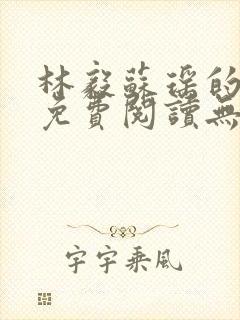 林毅蘇瑶的
免費閱讀無
宇宇乘风